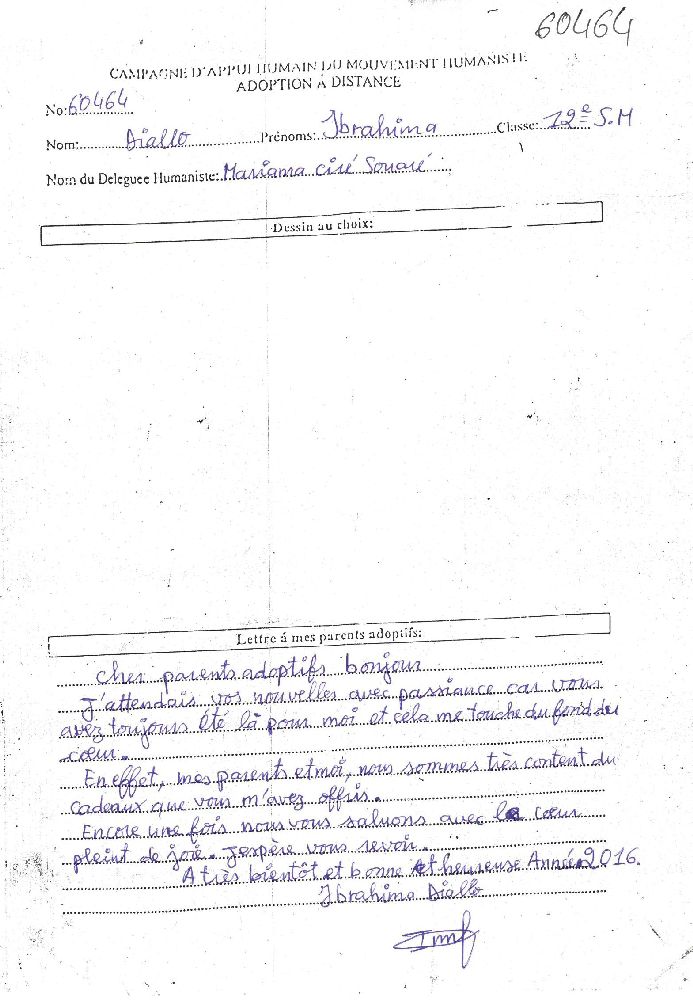 60464
CAMPAGNE D'APPUI HUMAIN DU MOUVEMENT HUMANISTE
ADOPTION Á DISTANCE
No: 60464
Nom: Diallo Prénoms: Ibrahima Classe: 12e S.M
Nom du Deleguee Humaniste: Mariama ciré Souaré
Dessin au choix:
Lettre á mes parents adoptifs:
Cher parents adoptifs bonjour
J'attendais vos nouvelles avec passiance car vous
avez toujours été là pour moi et cela me touche du fond du
cœur.
En effet, mes parents et moi, nous sommes très content du
cadeaux que vous m'avez offris.
Encore une fois nous vous saluons avec le cœur
pleint de joie. J'espère vous revoir.
A très bientôt et bonne et heureuse Année 2016.
Ibrahima Diallo